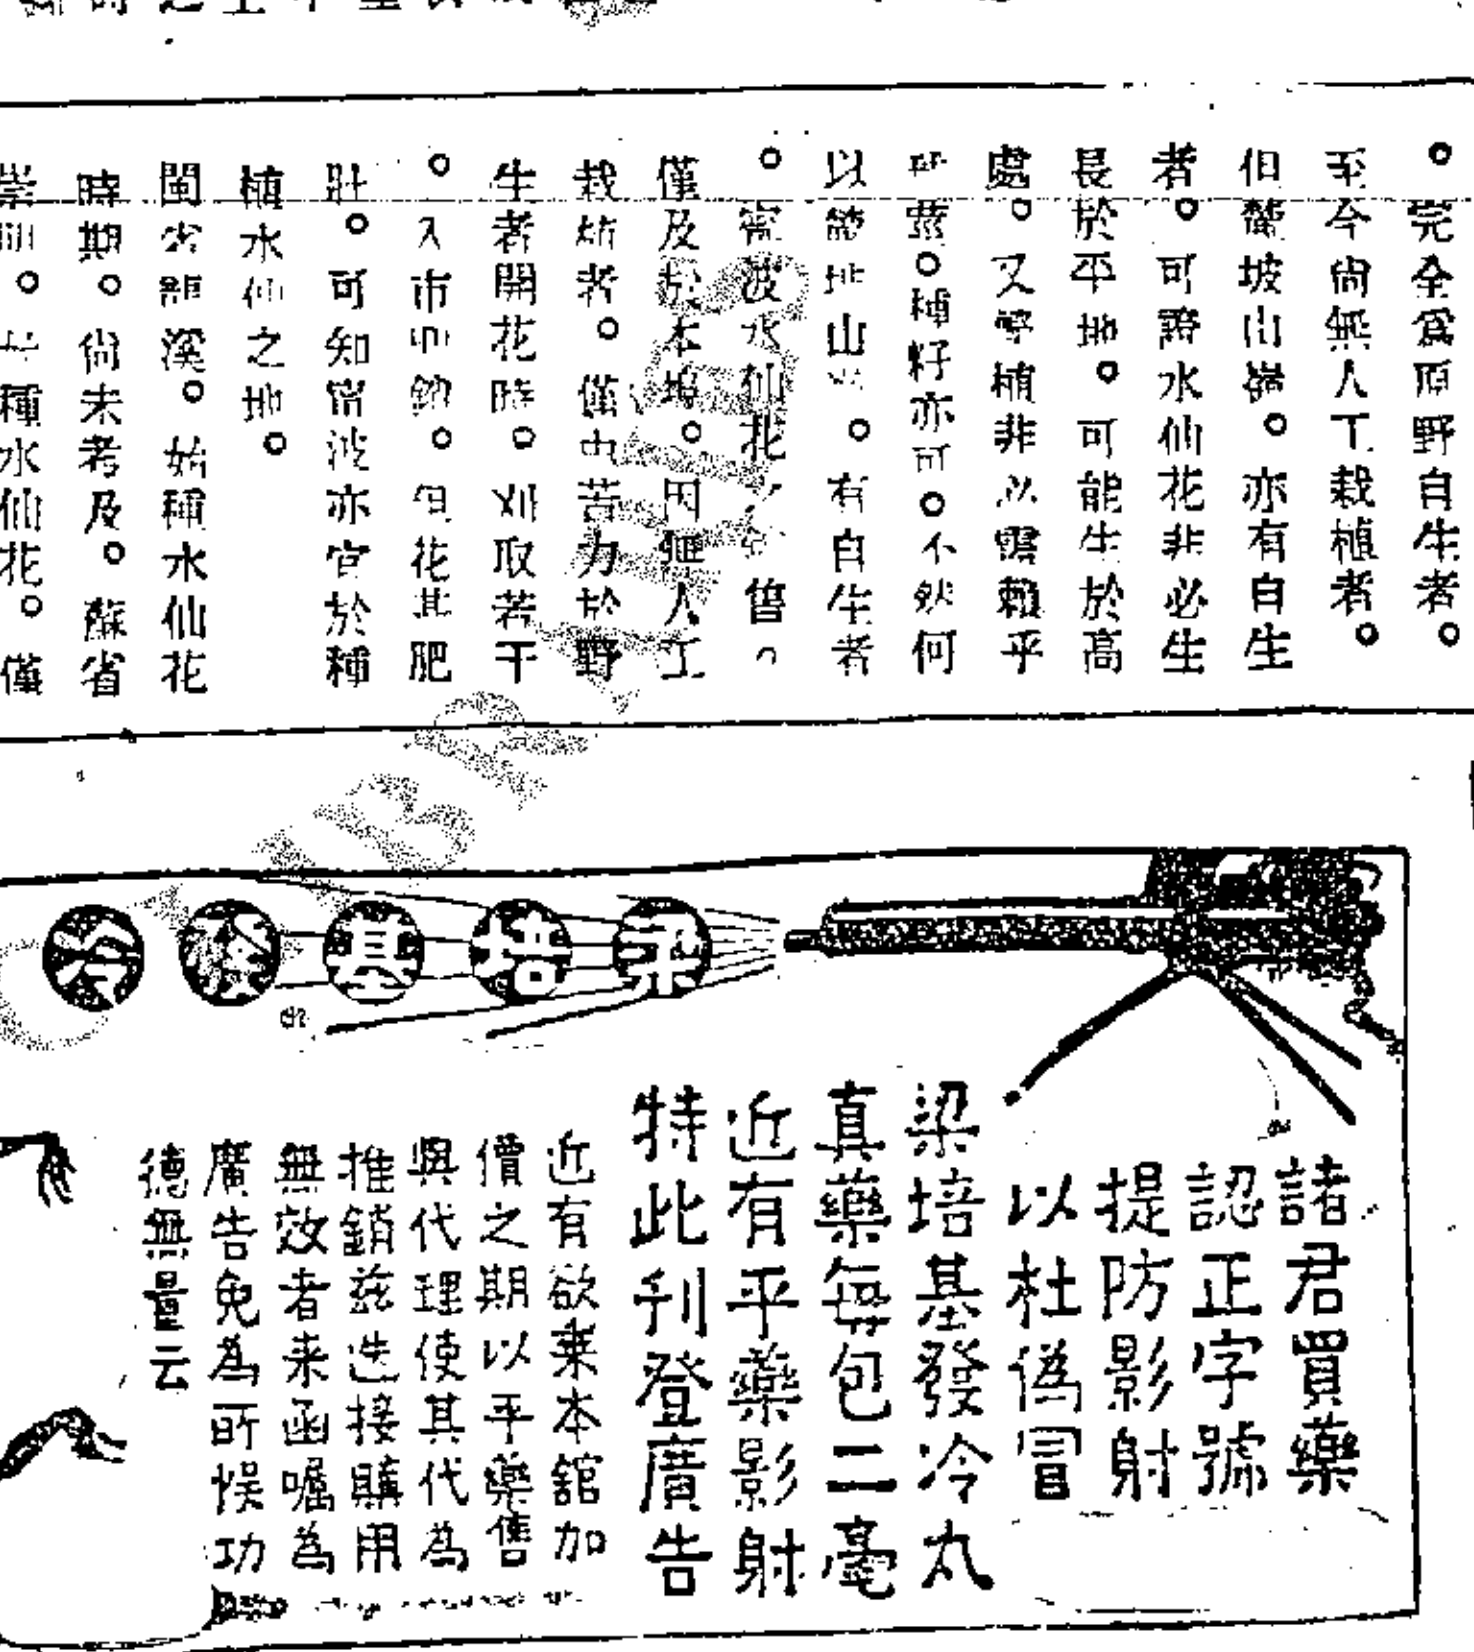 。完全爲原野自生者。
至今尙無人工栽植者。
但麓坡山嶺。亦有自生
者。可證水仙花非必生
長於平地。可能生於高
處。又野植非必需賴乎
種籽亦可。不然何
以 地山 。有自生者
。寗波水仙花 售。
僅及於本埠。因 人工
栽 者。僅由苦力於野
生者開花時。刈取若干
。入市 。但花甚肥
壯。可知甯波亦宜於種
植水仙之地。
閩省龍溪。始種水仙花
時期。尙未考及。蘇省
崇明。 種水仙花。僅
梁培基發冷
諸君買藥
認正字號
提防影射
以杜僞冒
梁培基發冷丸
真藥每包二毫
近有平藥影射
特此刊登廣告
近有欲棄本舘加
價之期以平藥售
與代理使其代為
推銷茲迭接購用
無效者来函囑為
廣告免為所悞功
德無量云